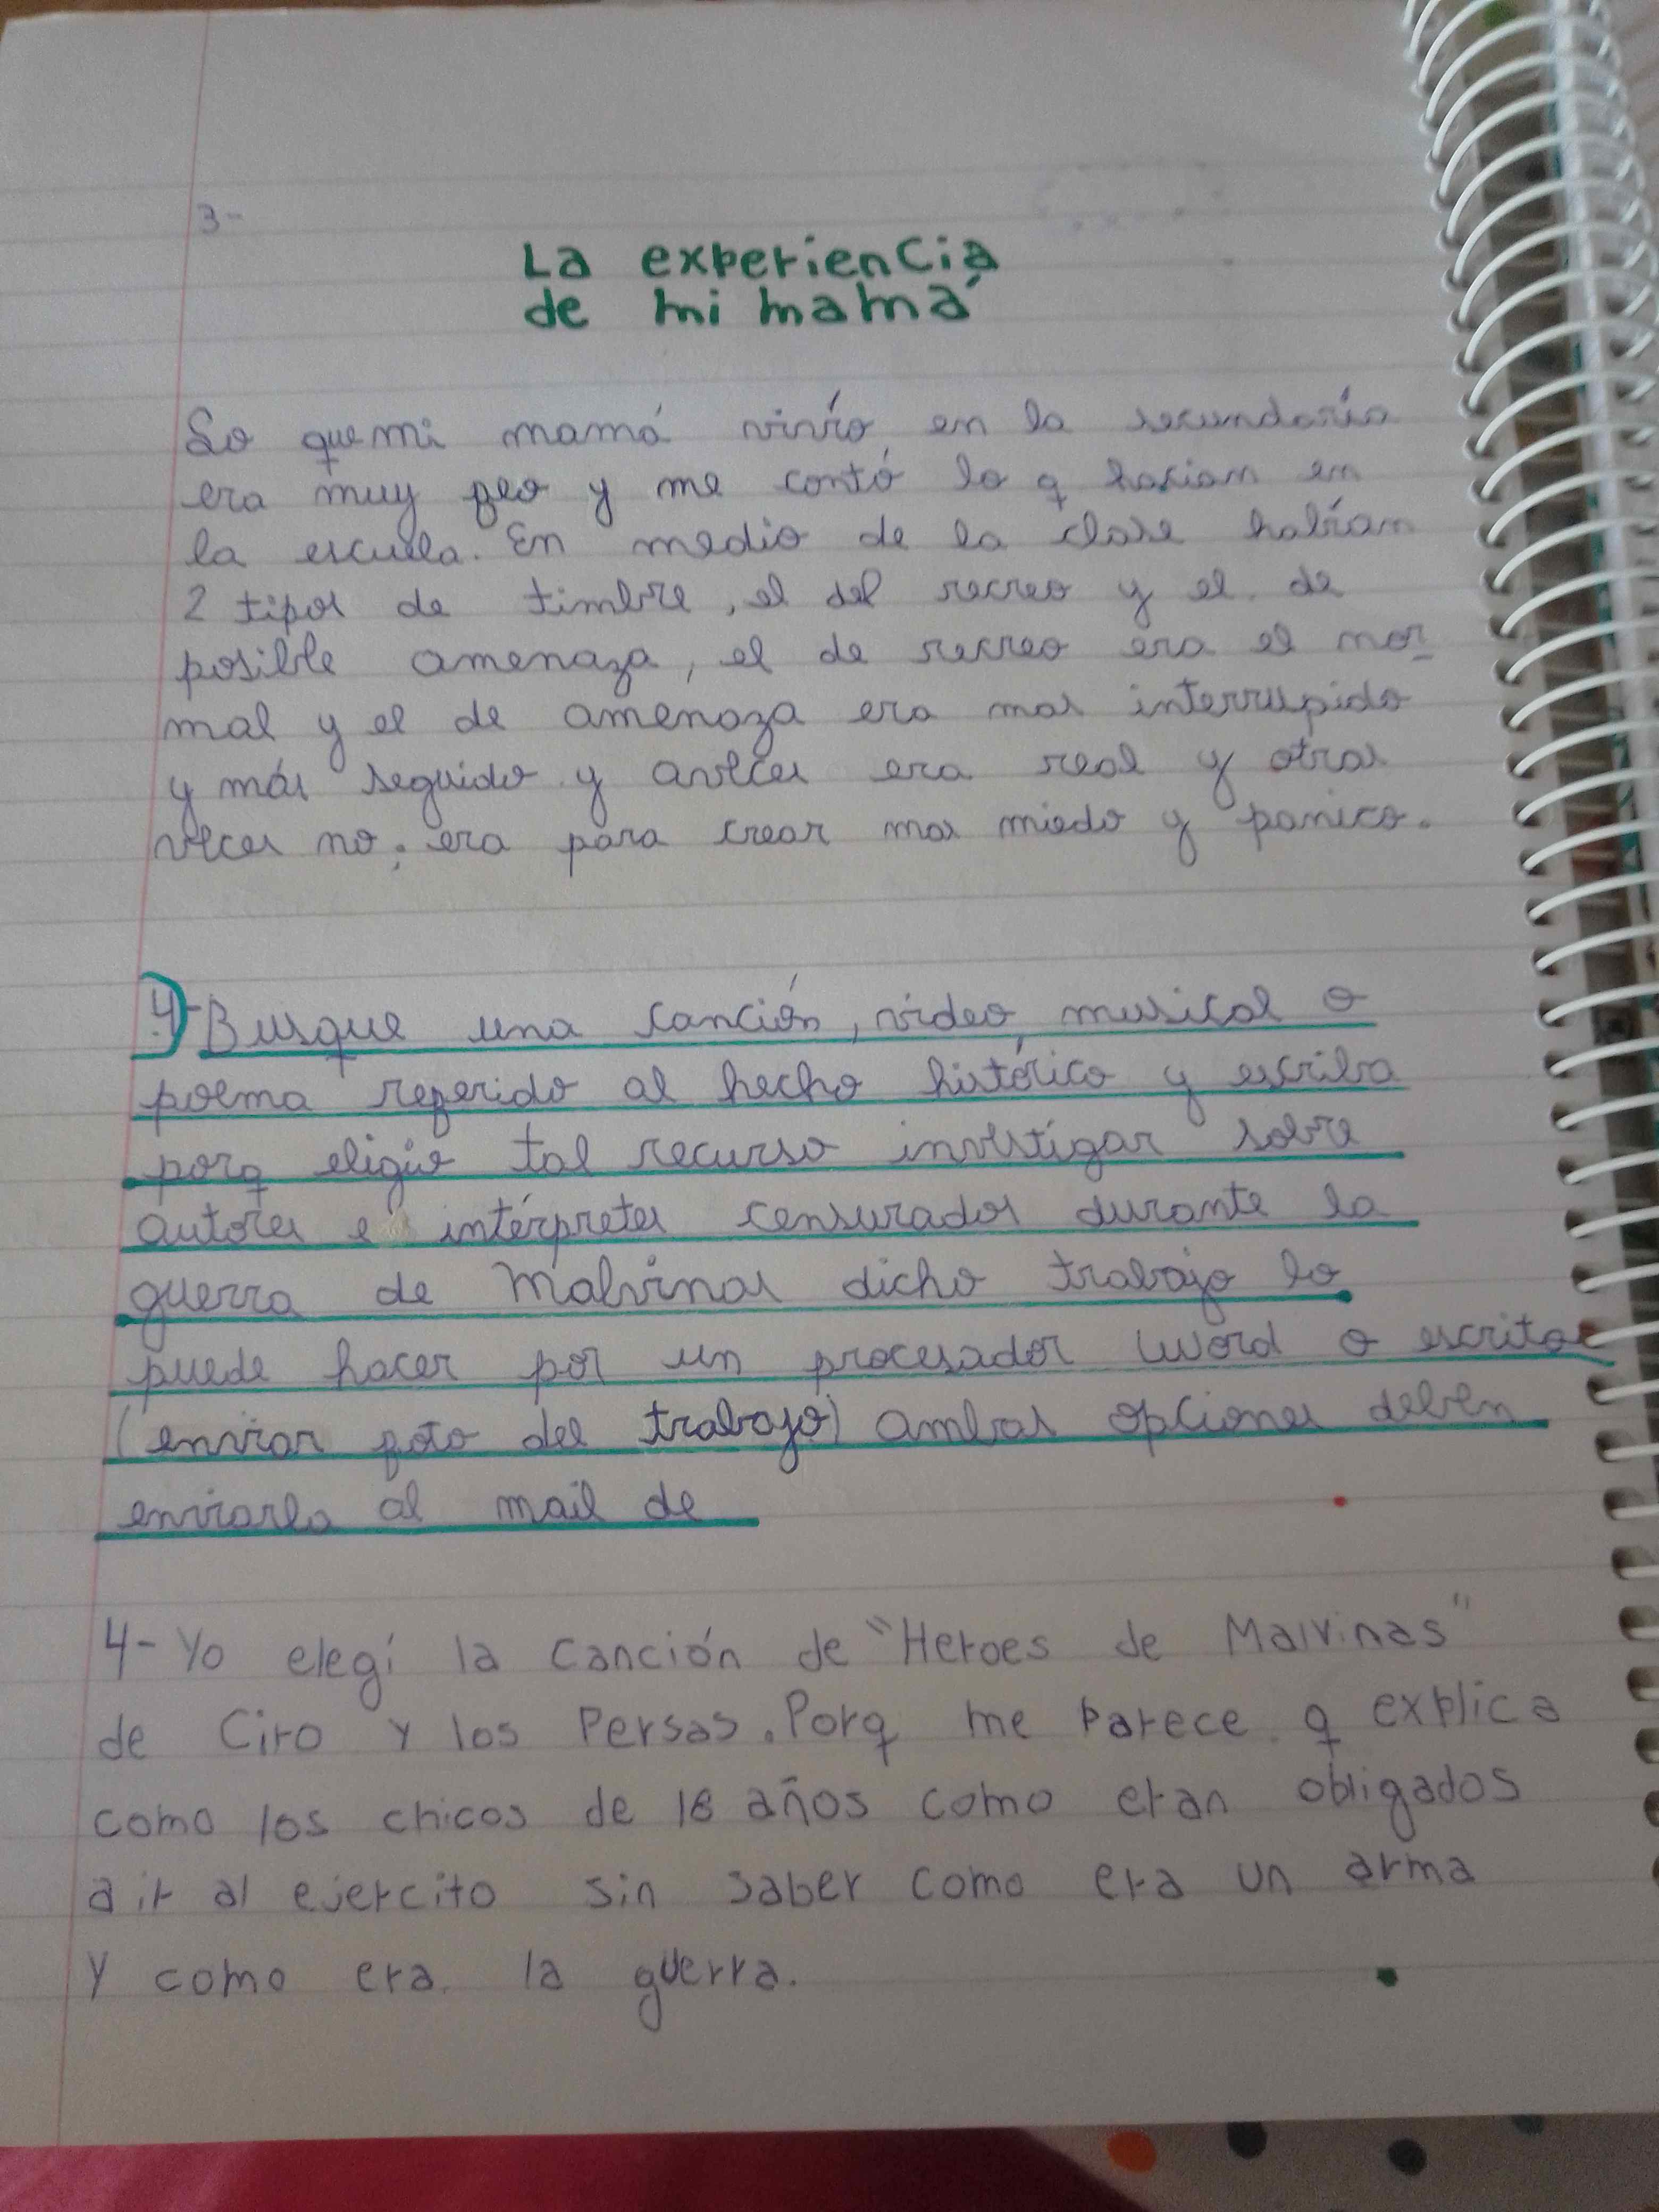 3-
La experiencia
de mi mamá
Lo que mi mamá vivío en la secundaria
era muy feo y me contó lo q hasiam en
la escuela. En medio de la clase habíam
2 tipos de timbre, el del recreo y el de
posible amenaza, el de recreo era el nor-
mal y el de amenaza era mas interrupido
y más seguido y aveces era real y otras
veces no; era para crear mas miedo y panico.
4- Busque una canción, vídeo musical o
poema referido al hecho histórico y escriba
porq eligio tal recurso investigar sobre
autores e intérpretes censurados durante la
guerra de Malvinas dicho trabajo lo
puede hacer por un procesador word o escritos
(enviar foto del trabajo) ambas opciones deben
enviarla al mail de
4- Yo elegí la canción de "Heroes de Malvinas"
de Ciro y los Persas. Porq me parece q explica
como los chicos de 18 años como eran obligados
a ir al ejercito sin saber como era un arma
Y como era la guerra.